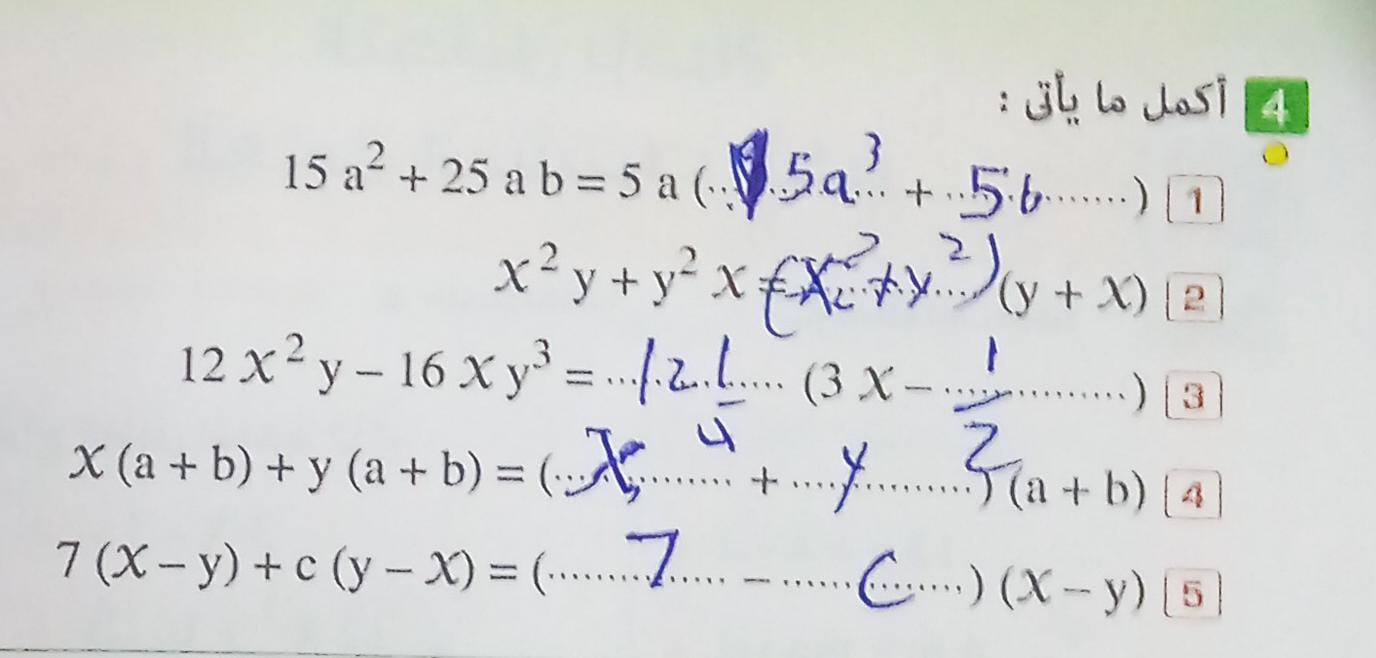 4 أكمل ما يأتى :
1 15 a² + 25 a b = 5 a (... 5a³ ... + ... 5b ...)
2 x² y + y² x = (x² + y²) (y + x)
3 12 x² y – 16 x y³ = ... 12 1/4 ... (3 x – ... 1/2 ...)
4 x (a + b) + y (a + b) = (... x ... + ... y ...) (a + b)
5 7 (x – y) + c (y – x) = (... 7 ... – ... c ...) (x – y)